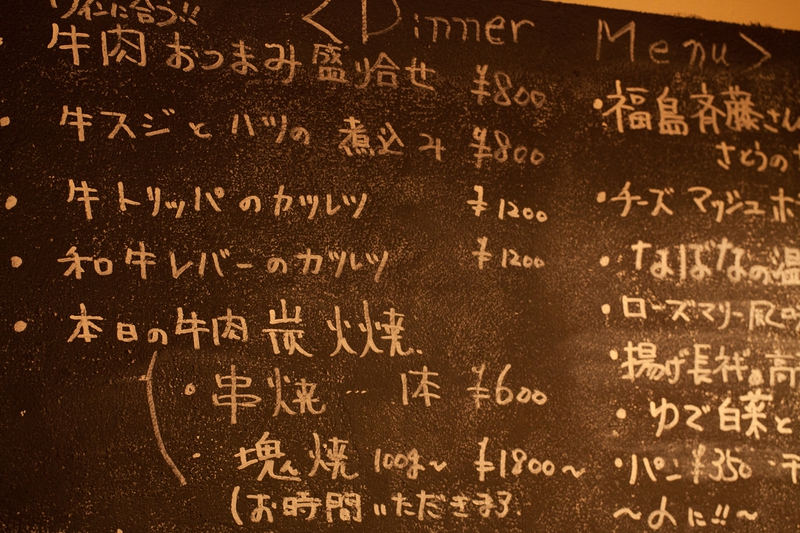 ワインに合う!!
<Dinner Menu>
牛肉 おつまみ 盛り合せ ¥800
・牛スジと ハツの 煮込み ¥800
・牛トリッパのカツレツ ¥1200
・和牛レバーのカツレツ ¥1200
・本日の牛肉 炭火焼
・串焼 … 1本 ¥600
・塊焼 100g~ ¥1800~
(お時間いただきます
・福島斉藤さん
さとうの
・チーズ マッシュポ
・なばなの温
・ローズマリー風味
・揚げ長芋
・ゆで白菜と
・パン ¥350